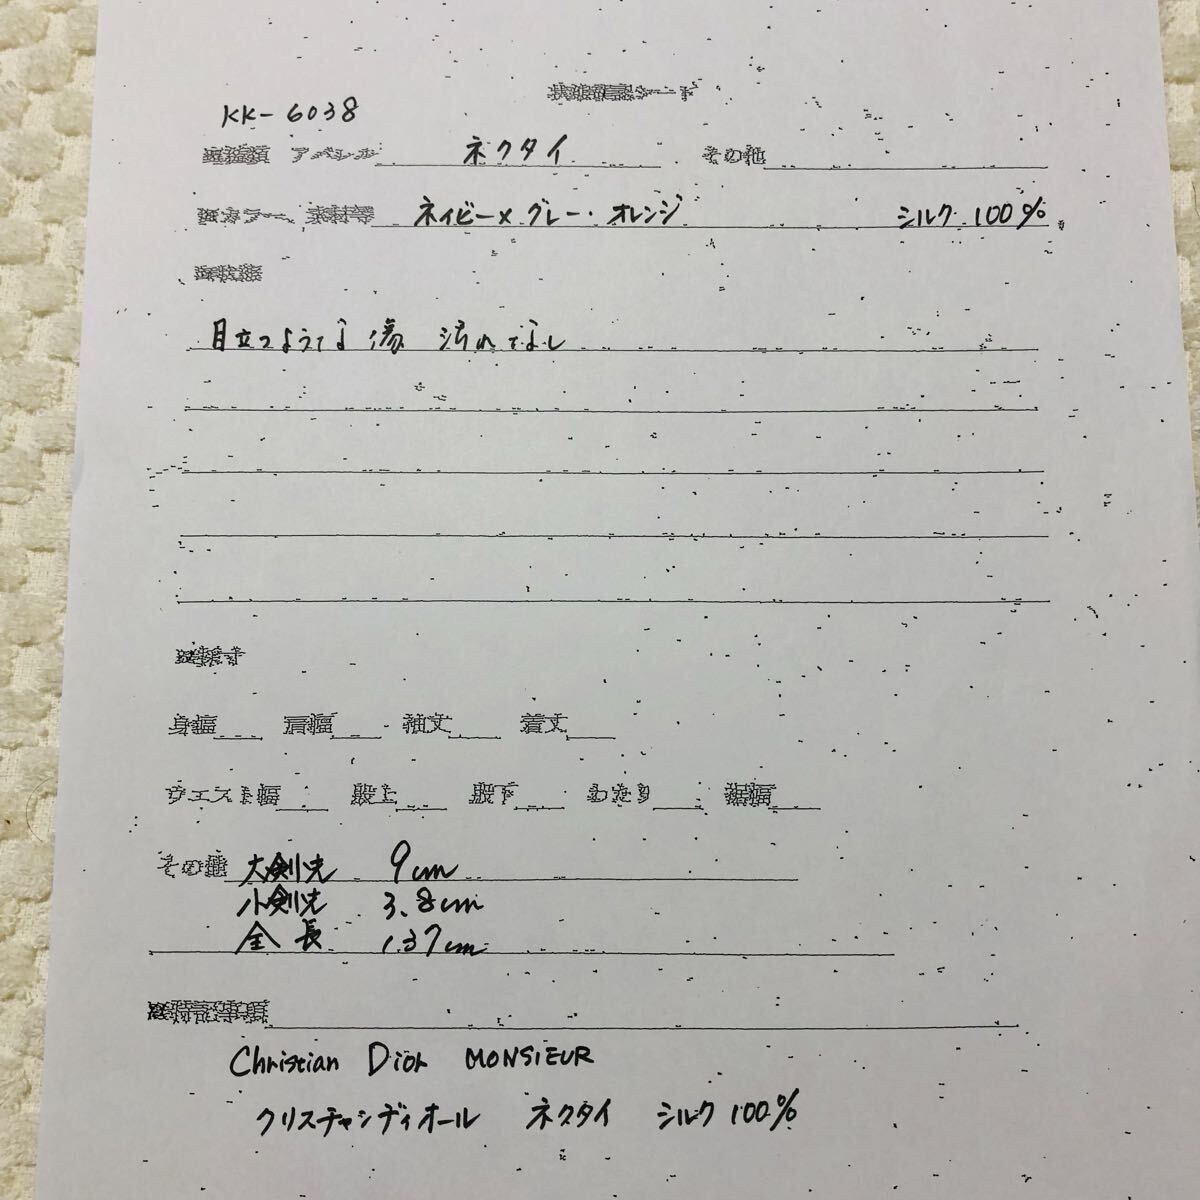 状態確認シート
KK-6038
※種類 アパレル ネクタイ その他
※カラー、素材等 ネイビー×グレー・オレンジ シルク 100%
※状態
目立つような傷 汚れてなし
※採寸
身幅 肩幅 袖丈 着丈
ウエスト幅 股上 股下 わたり 裾幅
その他 大剣先 9cm
小剣先 3.8cm
全長 137cm
※特記事項
Christian Dior MONSIEUR
クリスチャンディオール ネクタイ シルク 100%